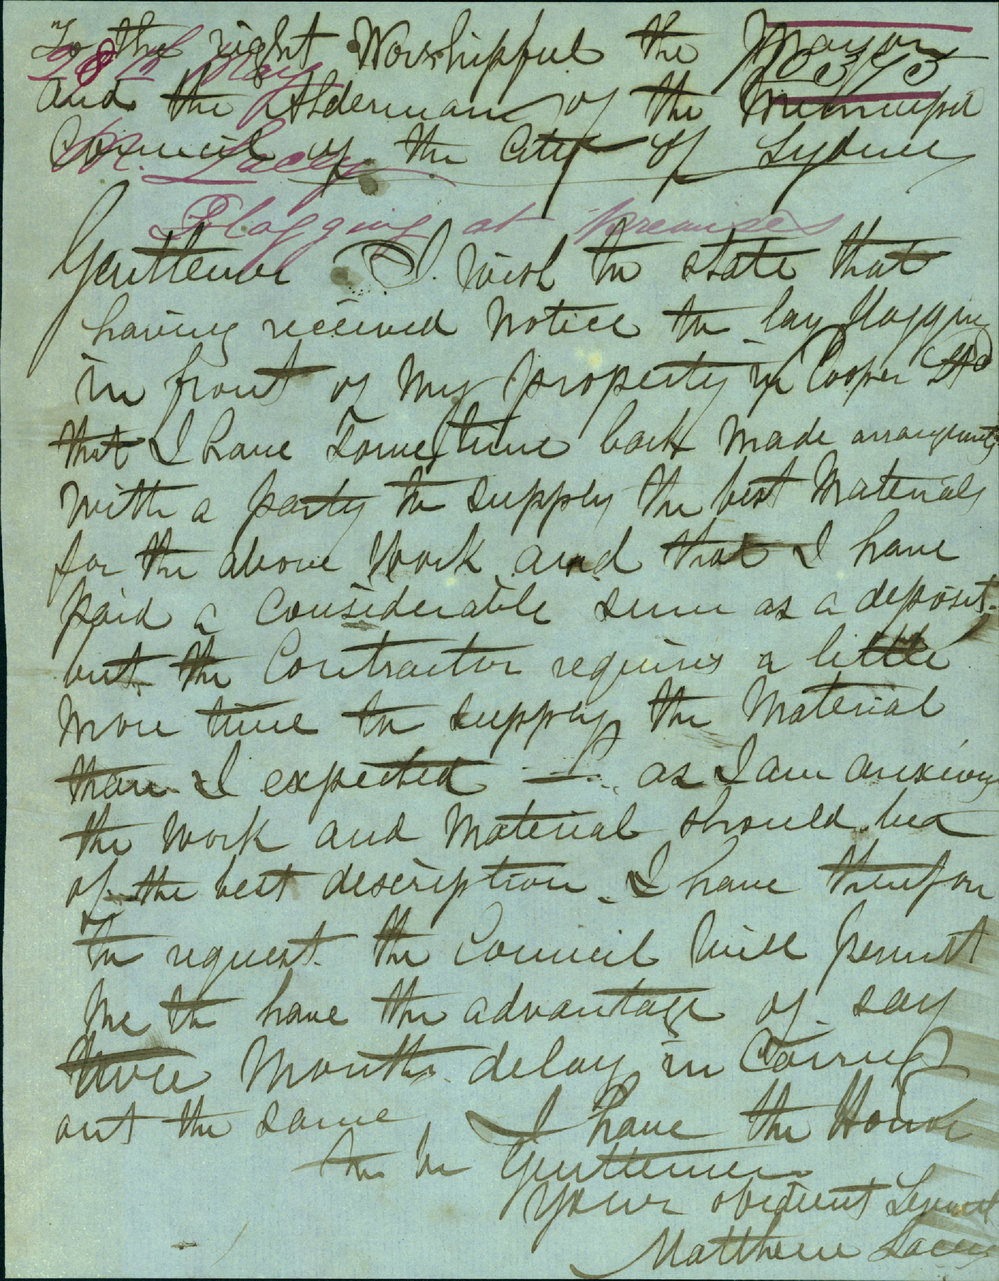 To the right Worshipful the Mayor
28th May
and the Alderman of the Municipal
Council of the City of Sydney
M. Lacey
Flagging at premises
Gentlemen I wish to state that
having received Notice to lay flagging
in front of my property in Cooper St
that I have some time back made arrangements
with a party to supply the best Materials
for the above Work and that I have
paid a considerable sum as a deposit
but the Contractor requires a little
more time to supply the Material
than I expected — as I am anxious
the work and Material should be
of the best description I have therefore
to request the Council will permit
me to have the advantage of say
Months delay in Carrying
out the same I have the Honor
to be Gentlemen
Your obedient Servant
Matthew Lacey